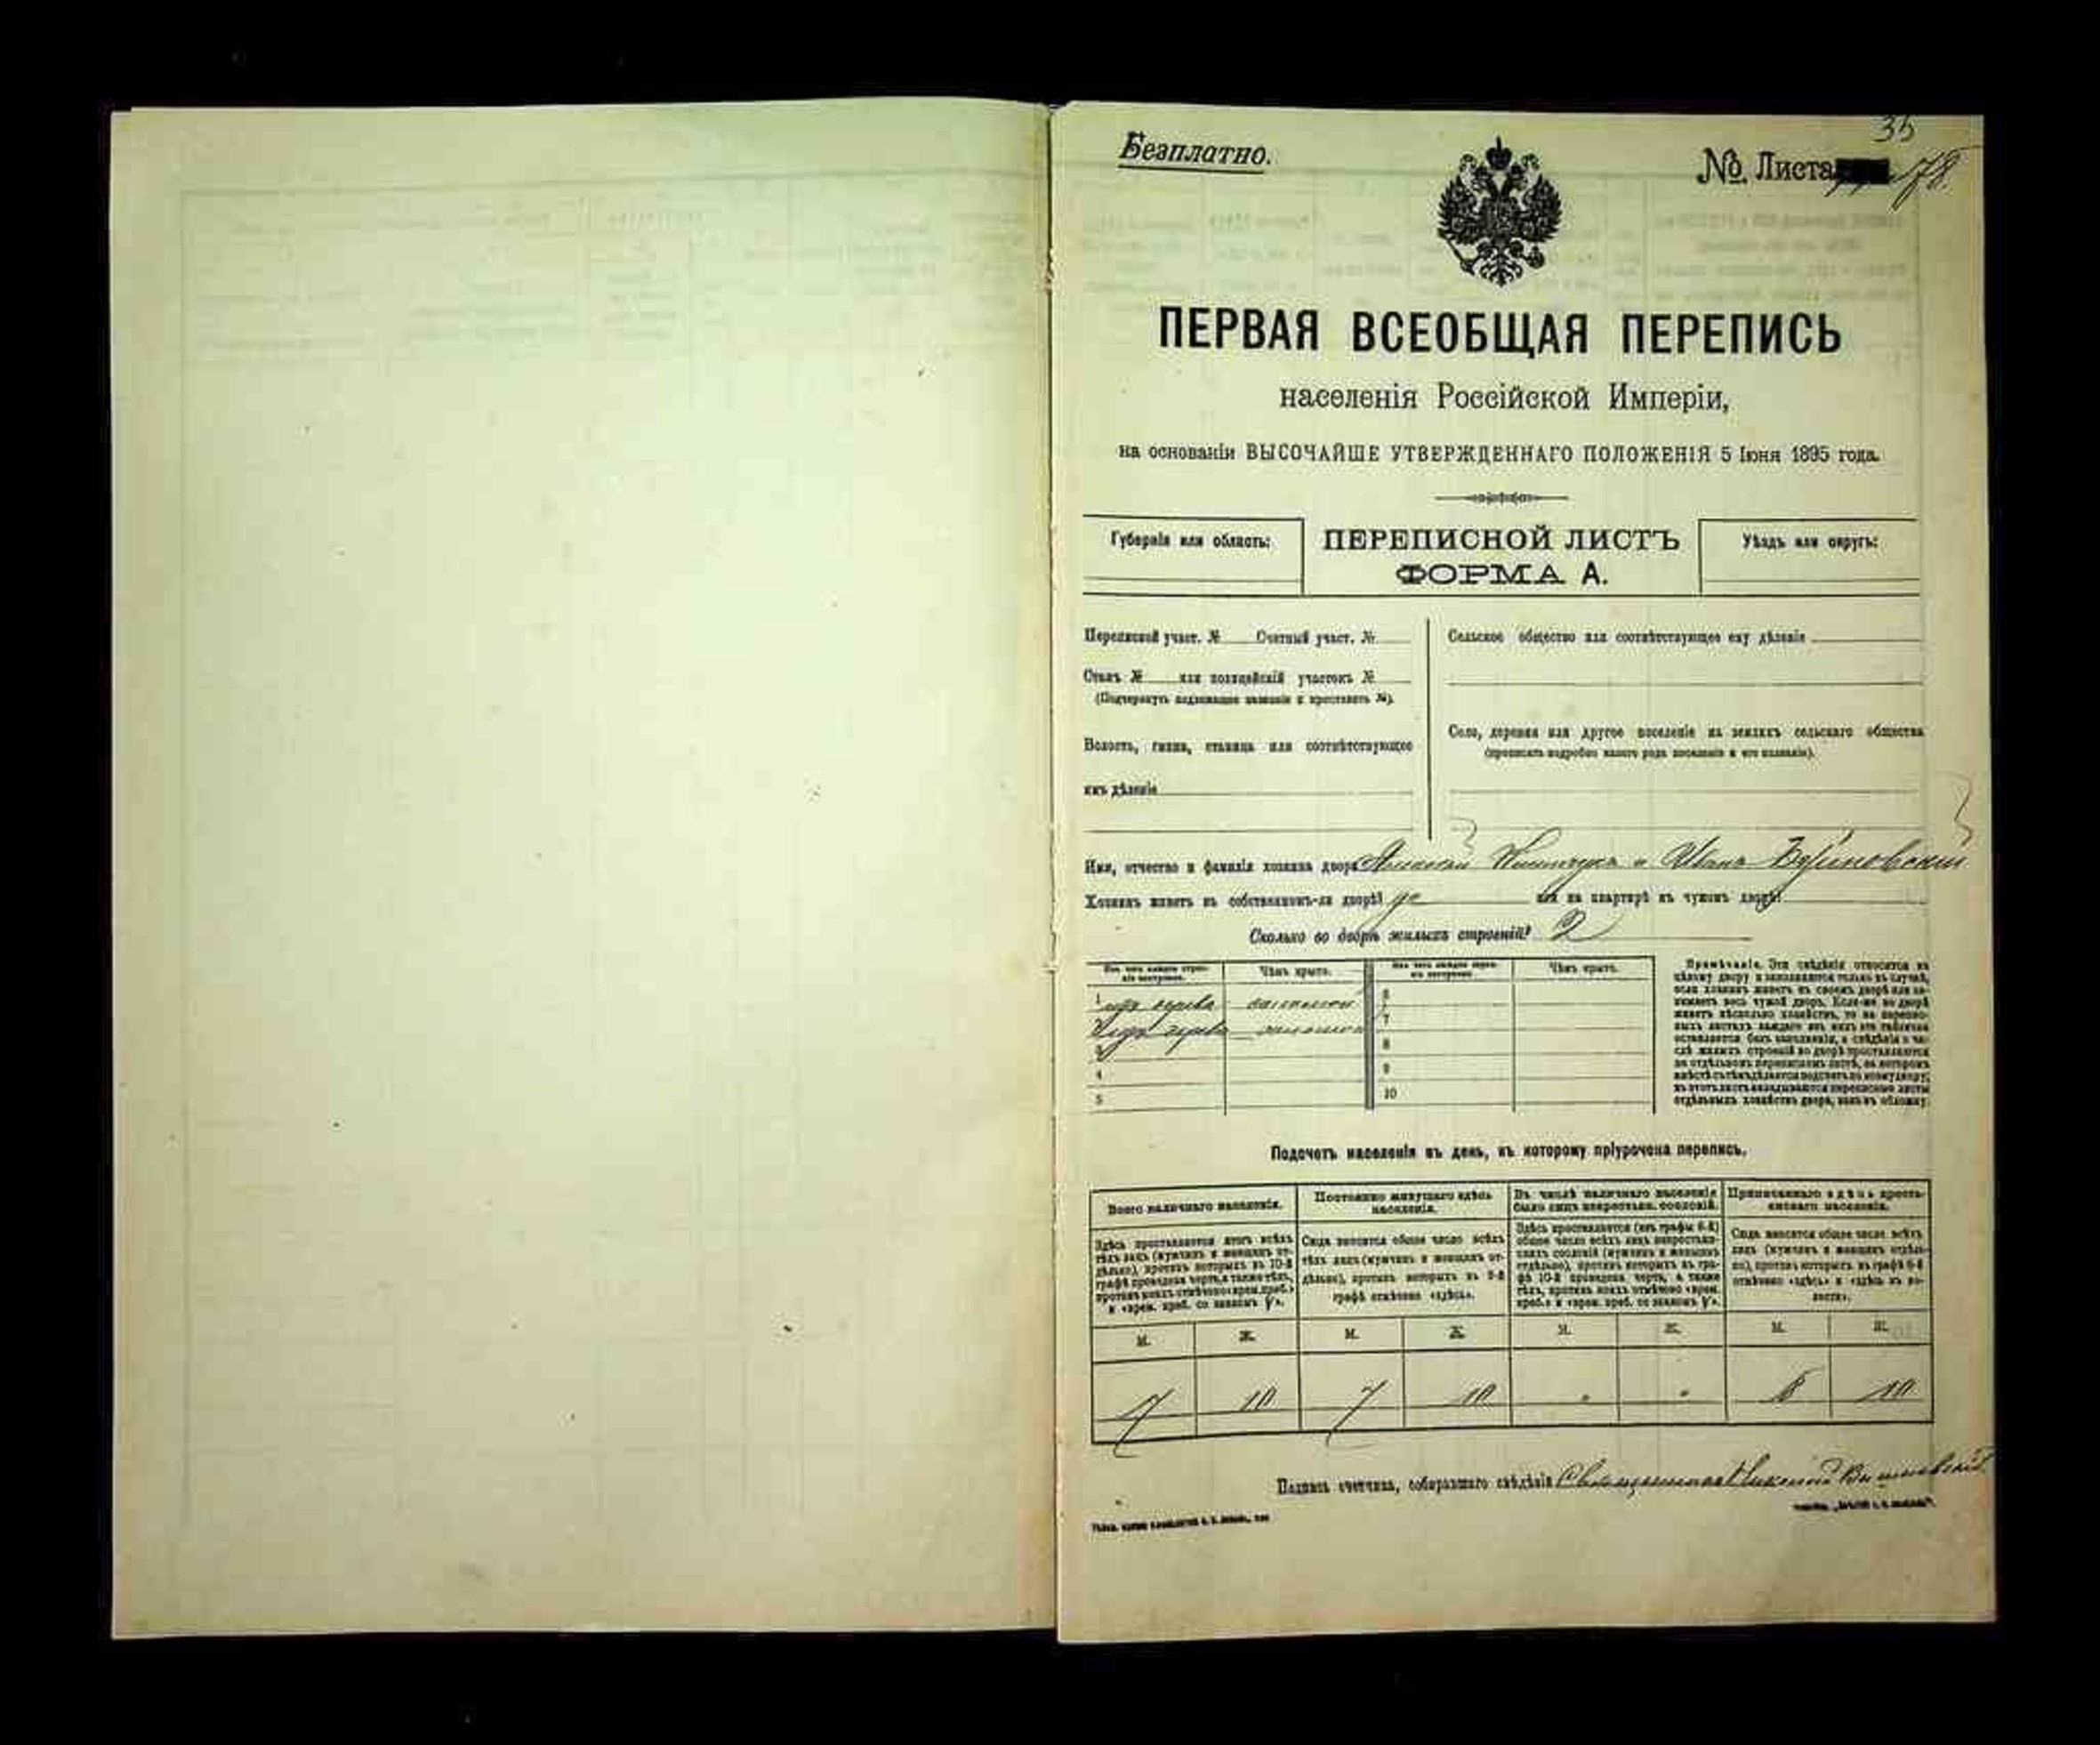 35
Безплатно.
№. Листа 78.
ПЕРВАЯ ВСЕОБЩАЯ ПЕРЕПИСЬ
населенія Россійской Имперіи,
на основаніи ВЫСОЧАЙШЕ УТВЕРЖДЕННАГО ПОЛОЖЕНІЯ 5 Іюня 1895 года.
Губернія или область:
ПЕРЕПИСНОЙ ЛИСТЪ
ФОРМА А.
Уѣздъ или округъ:
Переписной участ. № Счетный участ. №
Станъ № или полицейскій участокъ №
(Подчеркнуть подлежащее названіе и проставить №).
Волость, гмина, станица или соотвѣтствующее
имъ дѣленіе
Сельское общество или соотвѣтствующее ему дѣленіе
Село, деревня или другое поселеніе на земляхъ сельскаго общества
(прописать подробно какого рода поселеніе и его названіе).
Имя, отчество и фамилія хозяина двора и Иванъ
Хозяинъ живетъ въ собственномъ-ли дворѣ? да или на квартирѣ въ чужомъ дворѣ?
Сколько во дворѣ жилыхъ строеній? 2
Изъ чего каждое строе-
ніе построено.
Чѣмъ крыто.
Изъ чего каждое строе-
ніе построено.
Чѣмъ крыто.
1 изъ дерева соломой 6
2 изъ дерева соломой 7
3 8
4 9
5 10
Примѣчаніе. Эти свѣдѣнія относятся къ
цѣлому двору и заполняются только въ случаѣ,
если хозяинъ живетъ въ своемъ дворѣ или за-
нимаетъ весь чужой дворъ. Если-же во дворѣ
живетъ нѣсколько хозяйствъ, то на перепис-
ныхъ листахъ каждаго изъ нихъ эта табличка
оставляется безъ заполненія, а свѣдѣнія о чи-
слѣ жилыхъ строеній во дворѣ проставляются
на отдѣльномъ переписномъ листѣ, на которомъ
вмѣстѣ съ тѣмъ дѣлается подсчетъ по всему двору;
въ этотъ листъ вкладываются переписные листы
отдѣльныхъ хозяйствъ двора, какъ въ обложку.
Подсчетъ населенія въ день, къ которому пріурочена перепись.
Всего наличнаго населенія.
Постоянно живущаго здѣсь
населенія.
Въ числѣ наличнаго населенія
было лицъ некрестьян. сословій.
Приписаннаго здѣсь кресть-
янскаго населенія.
Здѣсь проставляется итогъ всѣхъ
тѣхъ лицъ (мужчинъ и женщинъ от-
дѣльно), противъ которыхъ въ 10-й
графѣ проведена черта, а также тѣхъ,
противъ коихъ отмѣчено «врем. преб.»
и «врем. преб. со знакомъ V».
Сюда вносится общее число всѣхъ
тѣхъ лицъ (мужчинъ и женщинъ от-
дѣльно), противъ которыхъ въ 9-й
графѣ отмѣчено «здѣсь».
Здѣсь проставляется (изъ графы 6-й)
общее число всѣхъ лицъ некрестьян-
скихъ сословій (мужчинъ и женщинъ
отдѣльно), противъ которыхъ въ гра-
фѣ 10-й проведена черта, а также
тѣхъ, противъ коихъ отмѣчено «врем.
преб.» и «врем. преб. со знакомъ V».
Сюда вносится общее число всѣхъ
лицъ (мужчинъ и женщинъ отдѣль-
но), противъ которыхъ въ графѣ 8-й
отмѣчено «здѣсь» и «здѣсь въ во-
лости».
М. Ж. М. Ж. М. Ж. М. Ж.
7 10 7 10 " " 6 10
Подпись счетчика, собиравшаго свѣдѣнія Священникъ Николай